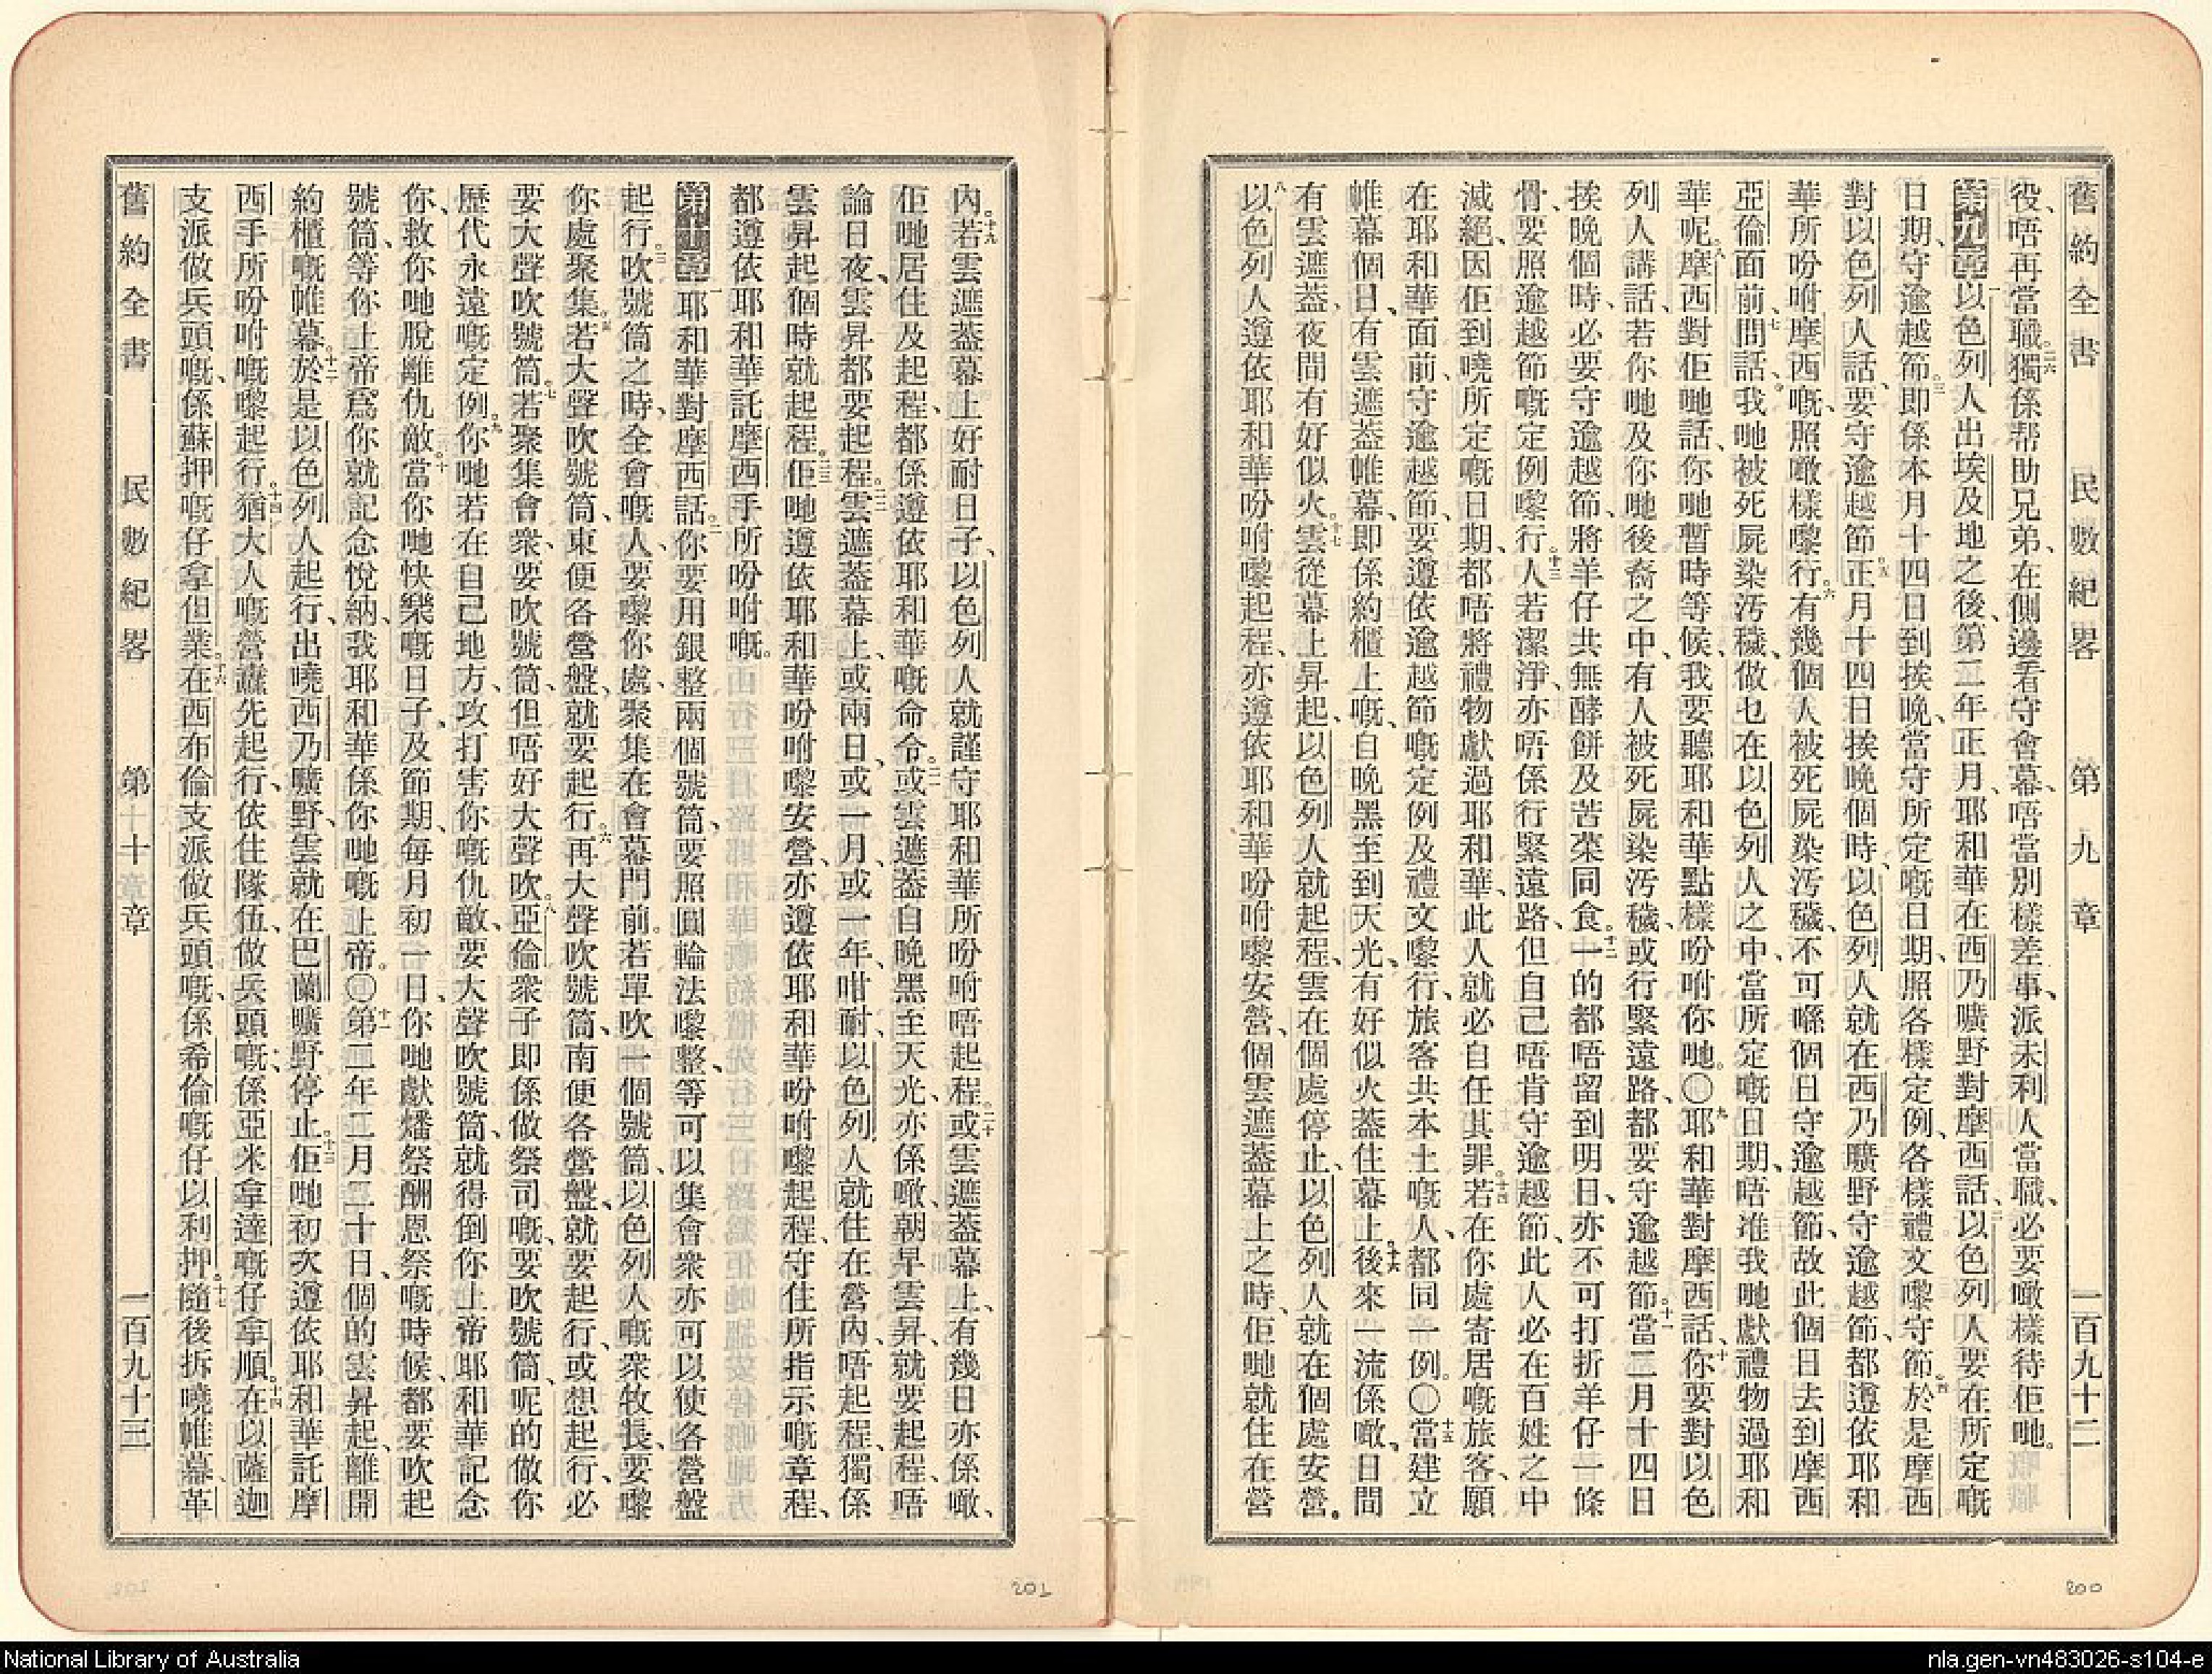 舊約全書 民數紀畧 第九章 一百九十二
役、唔再當職、二六獨係帮助兄弟、在側邊看守會幕、唔當別樣差事、派未利人當職、必要噉樣待佢哋。
第九章 一以色列人出埃及地之後、第二年正月、耶和華在西乃曠野對摩西話、二以色列人要在所定嘅
日期、守逾越節。三即係本月十四日到挨晚、當守所定嘅日期、照各樣定例、各樣禮文嚟守節。四於是摩西
對以色列人話、要守逾越節。五正月十四日挨晚個時、以色列人就在西乃曠野守逾越節、都遵依耶和
華所吩咐摩西嘅、照噉樣嚟行。六有幾個人被死屍染汚穢、不可喺個日守逾越節、故此個日去到摩西
亞倫面前、七問話、我哋被死屍染汚穢、做乜在以色列人之中、當所定嘅日期、唔准我哋獻禮物過耶和
華呢。八摩西對佢哋話、你哋暫時等候、我要聽耶和華點樣吩咐你哋。〇九耶和華對摩西話、十你要對以色
列人講話、若你哋及你哋後裔之中、有人被死屍染汚穢、或行緊遠路、都要守逾越節。十一當二月十四日
挨晚個時、必要守逾越節、將羊仔共無酵餅及苦菜同食。十二一的都唔留到明日、亦不可打折羊仔一條
骨、要照逾越節嘅定例嚟行。十三人若潔淨、亦唔係行緊遠路、但自己唔肯守逾越節、此人必在百姓之中
滅絕、因佢到曉所定嘅日期、都唔將禮物獻過耶和華、此人就必自任其罪。十四若在你處寄居嘅旅客、願
在耶和華面前、守逾越節、要遵依逾越節嘅定例及禮文嚟行、旅客共本土嘅人、都同一例。〇十五當建立
帷幕個日、有雲遮葢帷幕、即係約櫃上嘅、自晚黑至到天光、有好似火葢住幕上。十六後來一流係噉、日間
有雲遮葢、夜間有好似火。十七雲從幕上昇起、以色列人就起程、雲在個處停止、以色列人就在個處安營。
十八以色列人遵依耶和華吩咐嚟起程、亦遵依耶和華吩咐嚟安營、個雲遮葢幕上之時、佢哋就住在營
內。十九若雲遮葢幕上好耐日子、以色列人就謹守耶和華所吩咐唔起程。二十或雲遮葢幕上、有幾日亦係噉、
佢哋居住及起程、都係遵依耶和華嘅命令。二一或雲遮葢自晚黑至天光、亦係噉、朝早雲昇、就要起程、唔
論日夜、雲昇都要起程。二二雲遮葢幕上、或兩日、或一月、或一年、咁耐、以色列人就住在營內、唔起程、獨係
雲昇起個時就起程。二三佢哋遵依耶和華吩咐嚟安營、亦遵依耶和華吩咐嚟起程、守住所指示嘅章程、
都遵依耶和華託摩西手所吩咐嘅。
第十章 一耶和華對摩西話。二你要用銀整兩個號筒、要照圓輪法嚟整、等可以集會衆、亦可以使各營盤
起行。三吹號筒之時、全會嘅人、要嚟你處、聚集在會幕門前。四若單吹一個號筒、以色列人嘅衆牧長、要嚟
你處聚集。五若大聲吹號筒、東便各營盤、就要起行。六再大聲吹號筒、南便各營盤、就要起行、或想起行、必
要大聲吹號筒。七若聚集會衆、要吹號筒、但唔好大聲吹。八亞倫衆子、即係做祭司嘅、要吹號筒、呢的做你
歷代永遠嘅定例。九你哋若在自己地方、攻打害你嘅仇敵、要大聲吹號筒、就得倒你上帝耶和華記念
你、救你哋脫離仇敵。十當你哋快樂嘅日子、及節期、每月初一日、你哋獻燔祭酬恩祭嘅時候、都要吹起
號筒、等你上帝爲你就記念悅納、我耶和華係你哋嘅上帝。〇十一第二年二月二十日、個的雲昇起、離開
約櫃嘅帷幕。十二於是以色列人起行、出曉西乃曠野、雲就在巴蘭曠野停止。十三佢哋初次遵依耶和華託摩
西手所吩咐嘅嚟起行。十四猶大人嘅營纛先起行、依住隊伍、做兵頭嘅、係亞米拿達嘅仔拿順。十五在以薩迦
支派做兵頭嘅、係蘇押嘅仔拿但業。十六在西布倫支派做兵頭嘅、係希倫嘅仔以利押。十七隨後拆曉帷幕、革
舊約全書 民數紀畧 第十章 一百九十三
201
200
National Library of Australia
nla.gen-vn483026-s104-e